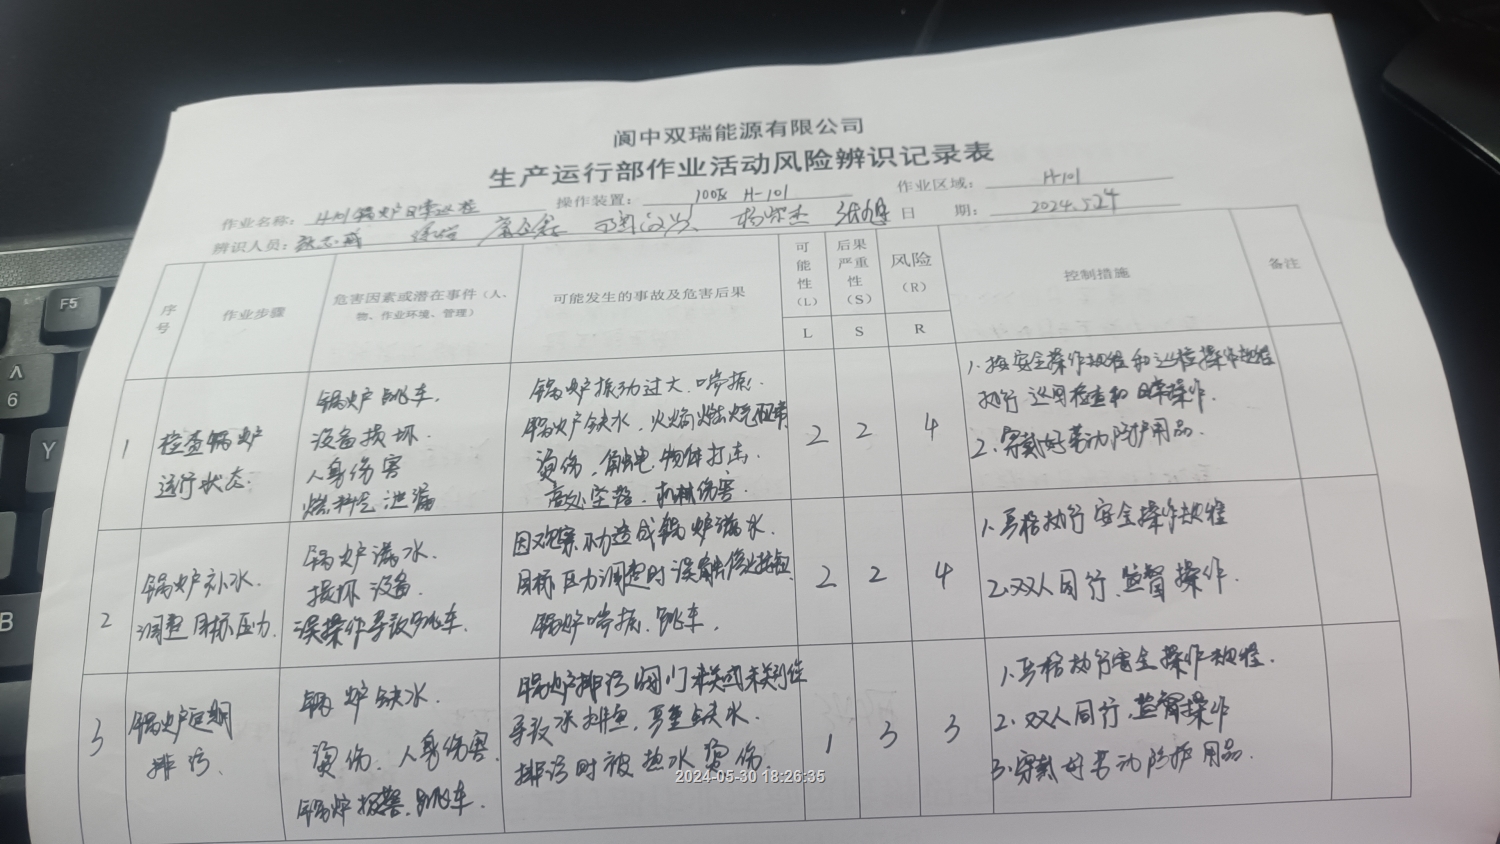 阆中双瑞能源有限公司
生产运行部作业活动风险辨识记录表
作业名称: 锅炉日常巡检 操作装置: 100区 H-101 作业区域: H-101
辨识人员: 日 期: 2024.5.24
序号 作业步骤 危害因素或潜在事件(人、物、作业环境、管理) 可能发生的事故及危害后果 可能性(L) 后果严重性(S) 风险(R) 控制措施 备注
L S R
1
检查锅炉
运行状态.
锅炉跳车.
设备损坏.
人身伤害
燃料气泄漏
锅炉振动过大.喘振.
锅炉缺水,火焰燃烧异常
烫伤,触电.物体打击.
高处坠落.机械伤害.
2 2 4
1.按安全操作规程和巡检操作规程
执行巡回检查和日常操作.
2.穿戴好劳动防护用品.
2
锅炉补水.
调整目标压力.
锅炉满水.
损坏设备.
误操作导致跳车.
因观察不力造成锅炉满水.
目标压力调整时误触停止按钮
锅炉喘振.跳车.
2 2 4
1.严格执行安全操作规程
2.双人同行.监督操作.
3
锅炉定期
排污、
锅炉缺水.
烫伤.人身伤害.
锅炉报警.跳车.
锅炉排污阀门未关或未关到位
导致水排空,严重缺水.
排污时被热水烫伤.
1 3 3
1.严格执行安全操作规程.
2.双人同行.监督操作
3.穿戴好劳动防护用品.
2024-05-30 18:26:35
F5
6
Y
B